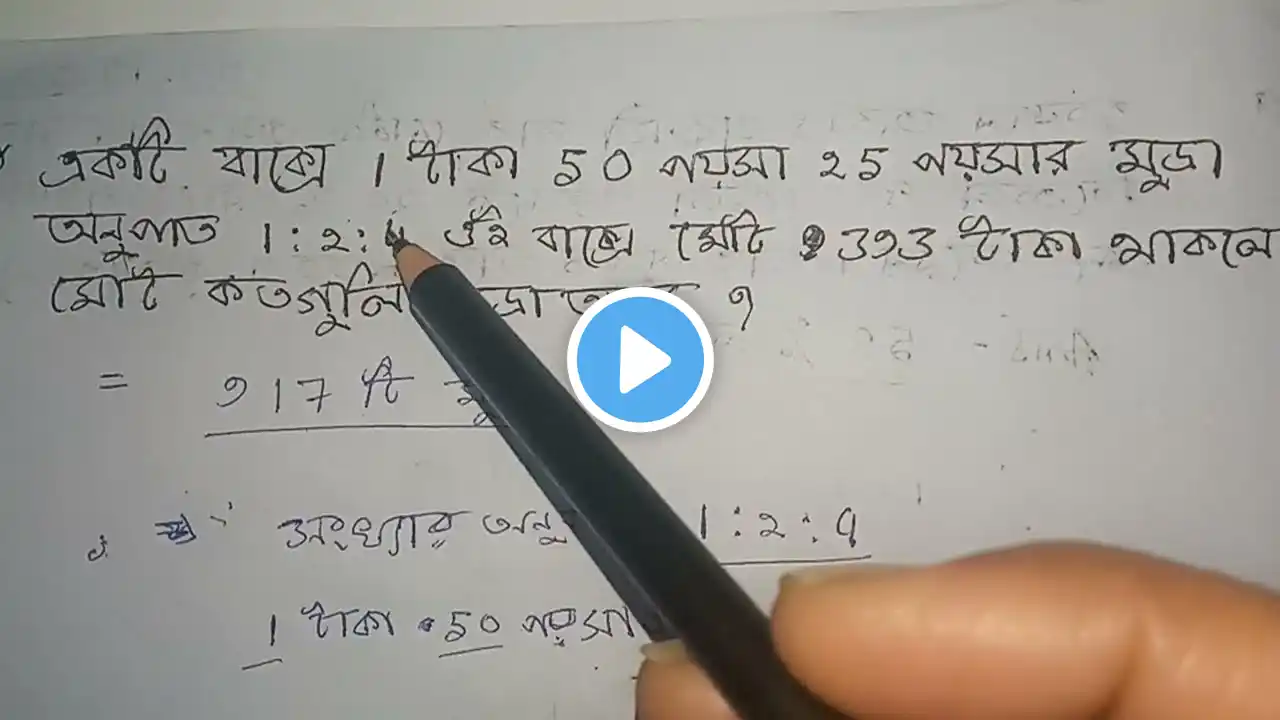 একটি বাক্সে 1 টাকা 50 পয়সা ২5 পয়সার মুদ্রা
অনুপাত 1:২:4 ঐ বাক্সে মোট 393 টাকা থাকলে
মোট কতগুলি ?
= 917 টি
সংখ্যার 1:২:4
1 টাকা 50 পয়সা